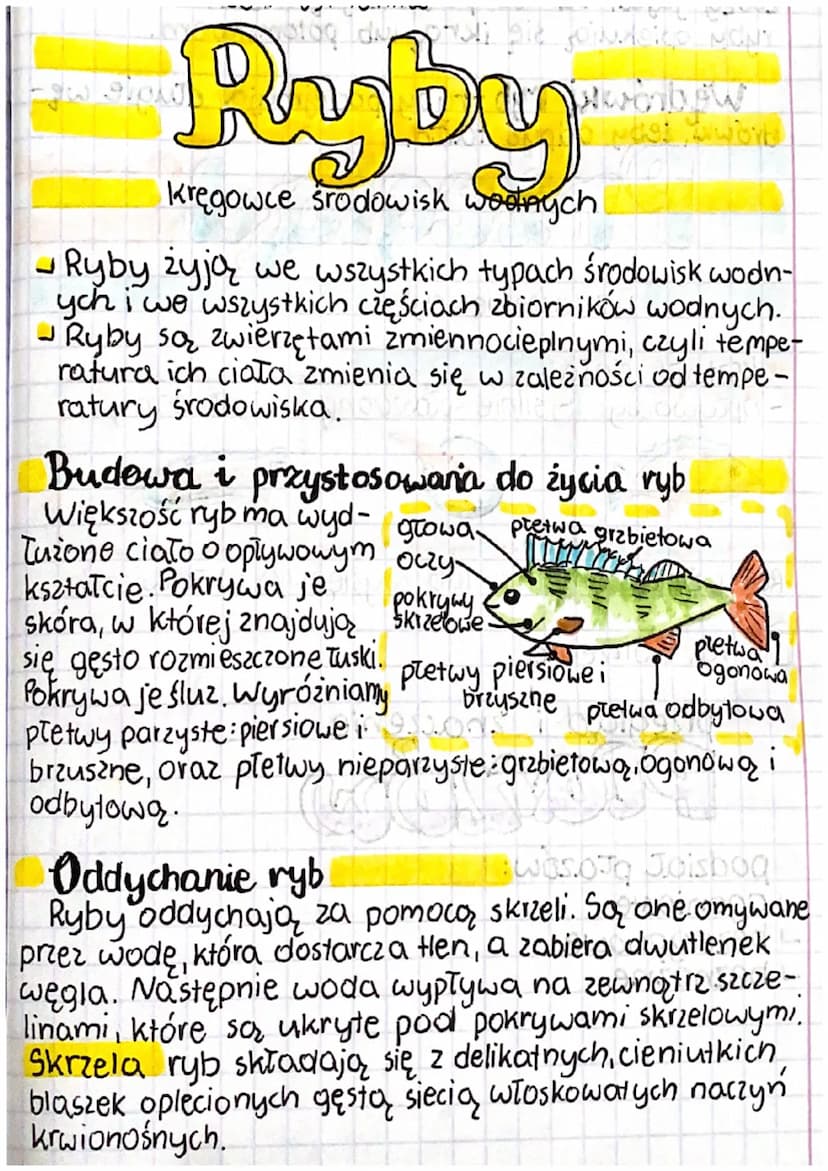 Ryby
kręgowce środowisk wodnych
Ryby żyją we wszystkich typach środowisk wodn-
ych i we wszystkich częściach zbiorników wodnych.
Ryby są zwierzętami zmiennocieplnymi, czyli tempe-
ratura ich ciała zmienia się w zależności od tempe-
ratury środowiska.
Budowa i przystosowania do życia ryb
Większość ryb ma wyd-
łużone ciało o opływowym
kształcie. Pokrywa je
skóra, w której znajdują
się gęsto rozmieszczone łuski.
Pokrywa je śluz. Wyróżniamy
płetwy parzyste: piersiowe i
brzuszne, oraz płetwy nieparzyste: grzbietową, ogonową i
odbytową.
głowa
płetwa grzbietowa
oczy
pokrywy
skrzelowe
płetwy piersiowe i
brzuszne
płetwa
ogonowa
płetwa odbytowa
Oddychanie ryb
Ryby oddychają za pomocą skrzeli. Są one omywane
przez wodę, która dostarcza tlen, a zabiera dwutlenek
węgla. Następnie woda wypływa na zewnątrz szcze-
linami, które są ukryte pod pokrywami skrzelowymi.
Skrzela ryb składają się z delikatnych, cieniutkich
blaszek oplecionych gęstą siecią włoskowatych naczyń
krwionośnych.